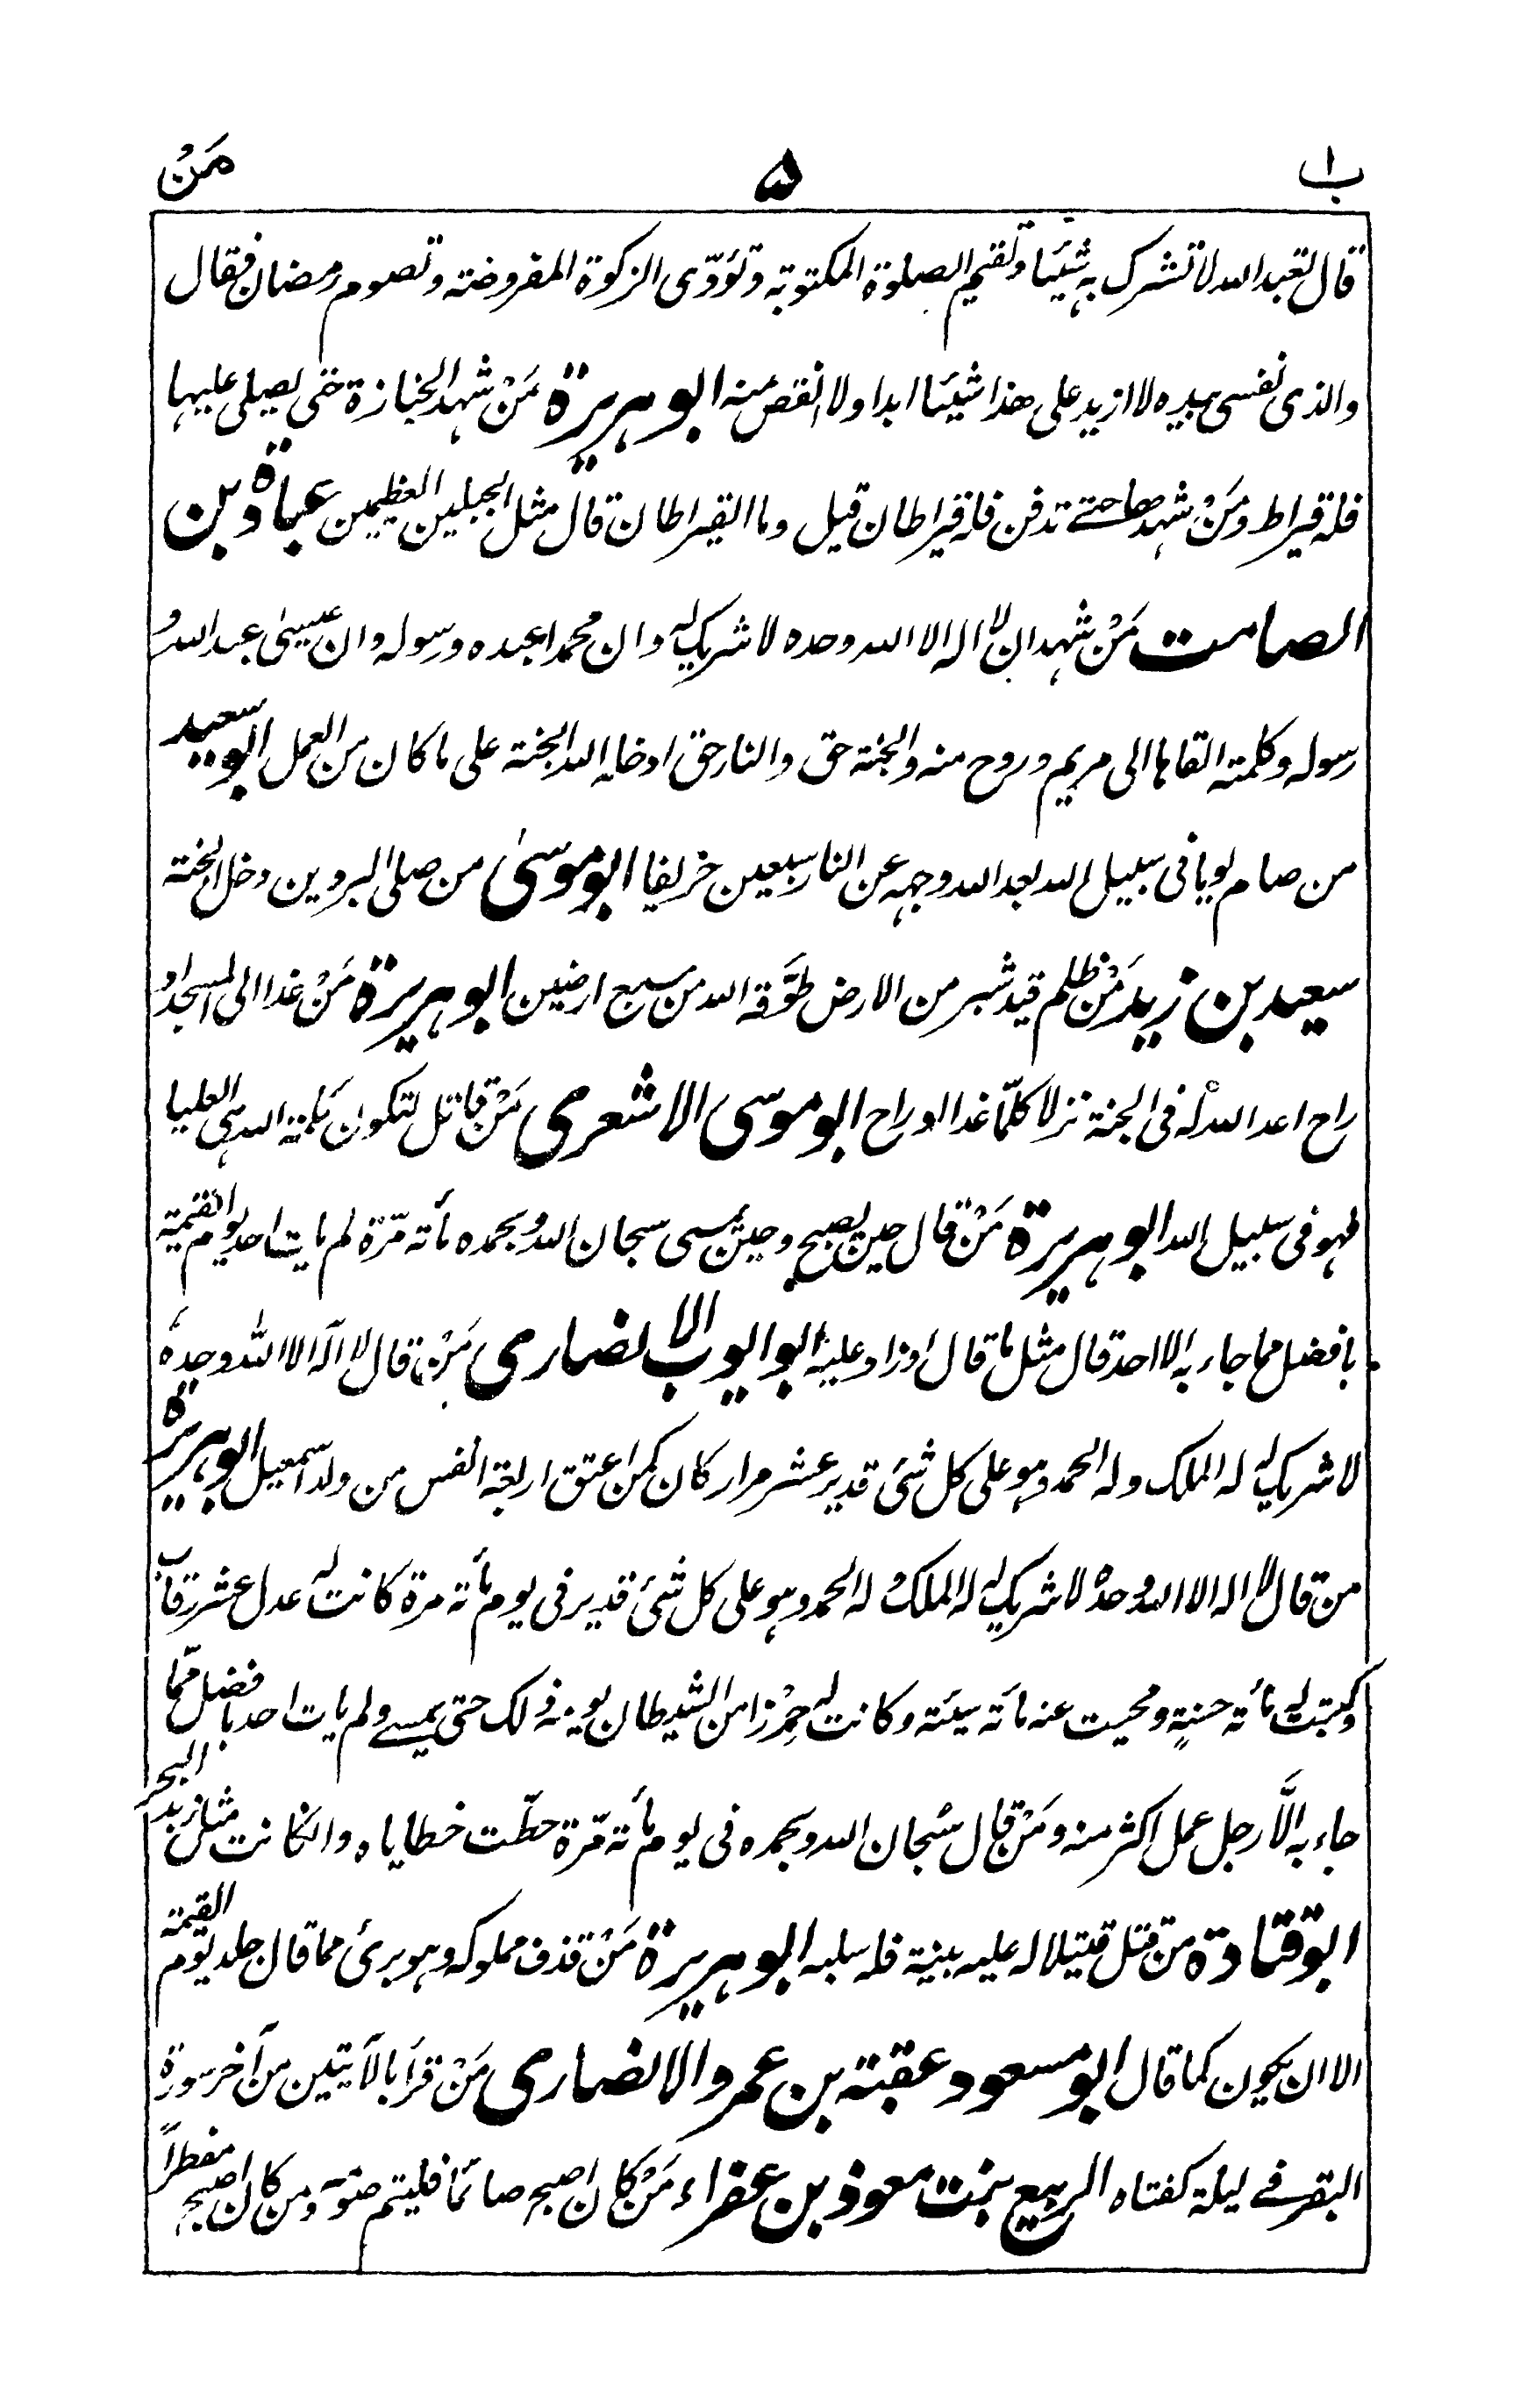 ب ا ۵ مَنْ
قال تعبد الله لا تشرك به شيئا وتقيم الصلوة المكتوبة وتؤدّى الزكوة المفروضة وتصوم رمضان فقال
والذى نفسى بيده لا ازيد على هذا شيئا ابدا ولا انقص منه ابو هريرة مَنْ شهد الجنازة حتى يصلى عليها
فله قيراط ومَنْ شهدها حتے تدفن فله قيراطان قيل وما القيراطان قال مثل الجبلين العظيمين عبادة بن
الصامت مَنْ شهد ان لا اله الا الله وحده لا شريك له وان محمدا عبده ورسوله وان عيسىٰ عبد الله و
رسوله وكلمته القاها الى مريم وروح منه والجنة حق والنار حق ادخله الله الجنة على ما كان من العمل ابو سعيد
من صام يوما فى سبيل الله بعد الله وجهه عن النار سبعين خريفا ابو موسىٰ من صلى البردين دخل الجنة
سعيد بن زيد مَنْ ظلم قيد شبر من الارض طوّقه الله من سبع ارضين ابو هريرة مَنْ غدا الى المسجد او
راح اعد الله له فى الجنة نزلا كلّما غدا او راح ابو موسى الاشعرى مَنْ قاتل لتكون كلمة الله هى العليا
فهو فى سبيل الله ابو هريرة مَنْ قال حين يصبح وحين يمسى سبحان الله وبحمده مأته مّرة لم يات احد يوم القيمة
بافضل مما جاء به الا احد قال مثل ما قال او زاد عليه ابو ايوب الانصارى مَنْ قال لا اله الا الله وحده
لا شريك له له الملك وله الحمد وهو على كل شئ قدير عشر مرار كان كمن اعتق اربعة انفس من ولد اسمعيل ابو هريرة
من قال لا اله الا الله وحده لا شريك له له الملك وله الحمد وهو على كل شئ قدير فى يوم مأته مرة كانت له عدل عشر رقاب
وكتبت له مأته حسنةٍ ومحيت عنه مأته سيئة وكانت له حِرْزا من الشيطان يومه ذلك حتى يمسے ولم يات احد بافضل ممّا
جاء به الّا رجل عمل اكثر منه ومَنْ قال سُبحان الله وبحمده فى يوم مأته مّرة حطّت خطاياه وان كانت مثل زبد البحر
ابو قتادة من قتل قتيلا له عليه بينة فله سلبه ابو هريرة مَنْ قذف مملوكه وهو برئ مما قال جلد يوم القيمة
الا ان يكون كما قال ابو مسعود عقبة بن عمرو الانصارى مَنْ قرأ بالآيتين من آخر سورة
البقر فے ليلة كفتاه الربيع بنت معوذ بن عفراء مَنْ كان اصبح صائما فليتم صومه ومن كان اصبح مفطراً